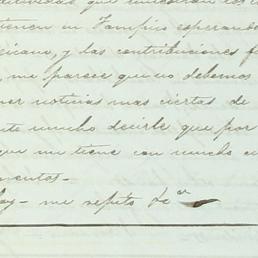 tienen en Tampico esperando
icano, y las contribuciones f
, me parece que no debemos
ner noticias mas ciertas de
te mucho decirle que por
que me tiene con mucho cu
mentos-
hoy- me repito de Vd